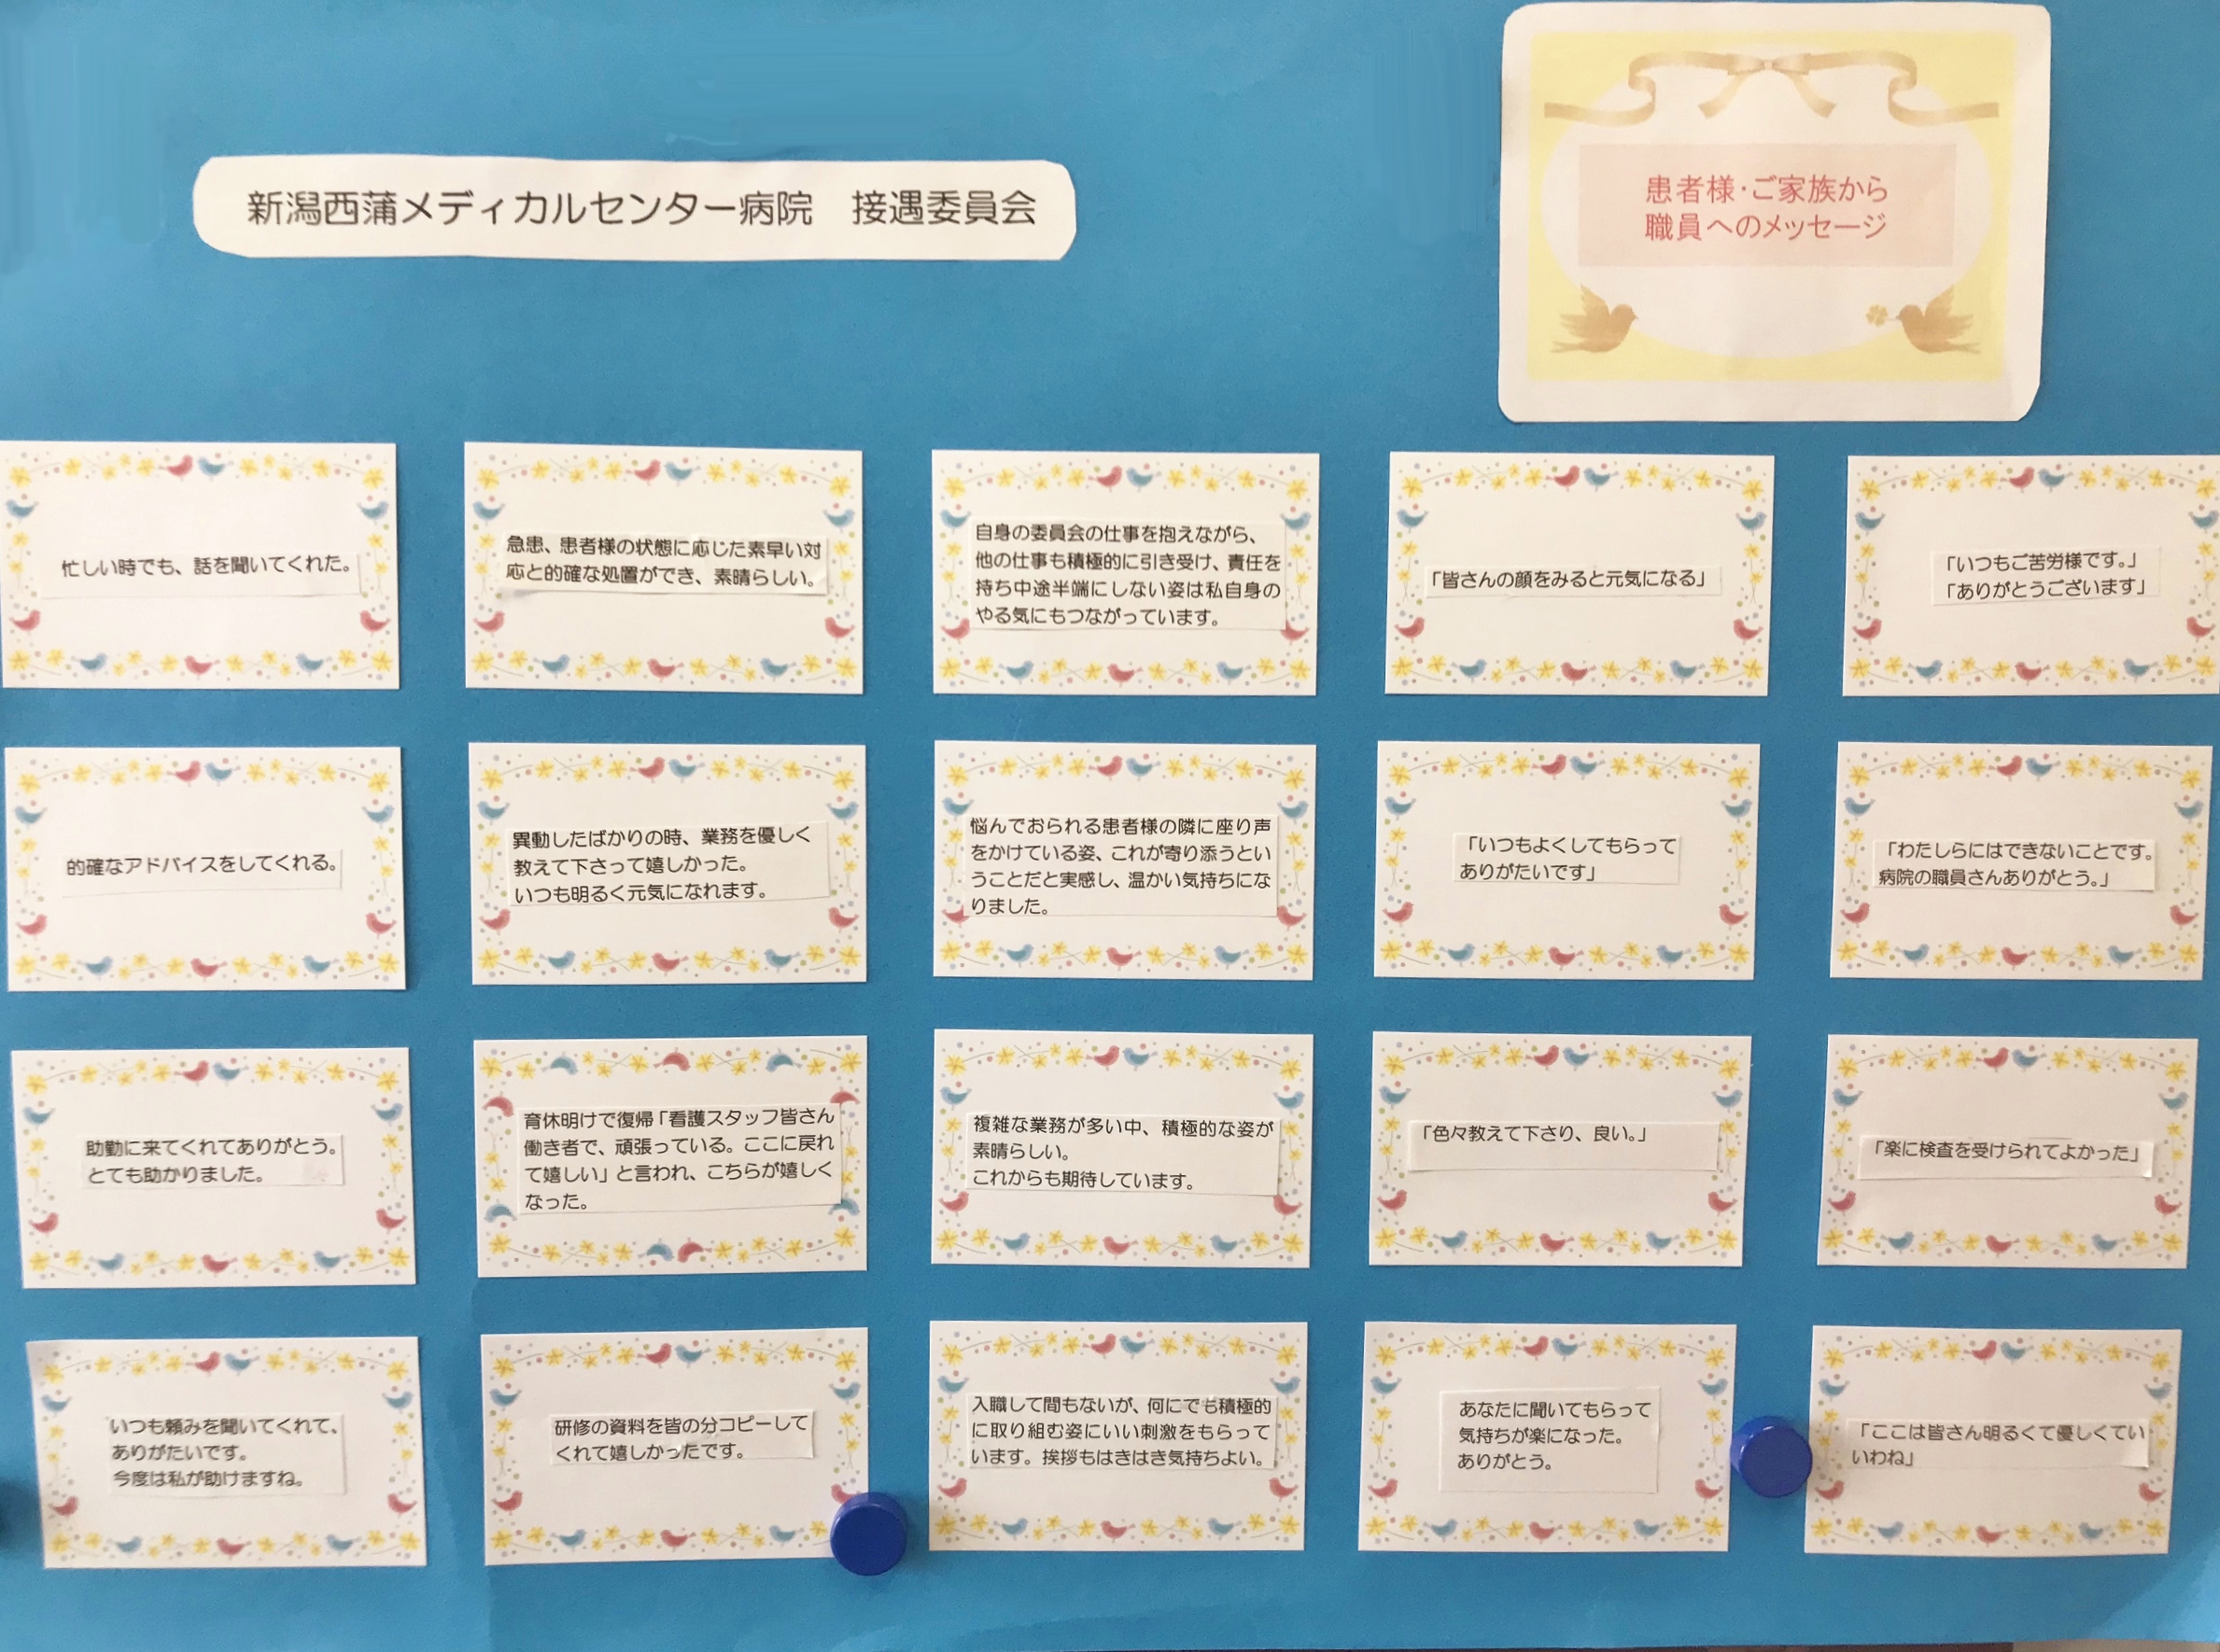 新潟西蒲メディカルセンター病院　接遇委員会
患者様・ご家族から
職員へのメッセージ
忙しい時でも、話を聞いてくれた。
急患、患者様の状態に応じた素早い対
応と的確な処置ができ、素晴らしい。
自身の委員会の仕事を抱えながら、
他の仕事も積極的に引き受け、責任を
持ち中途半端にしない姿は私自身の
やる気にもつながっています。
「皆さんの顔をみると元気になる」
「いつもご苦労様です。」
「ありがとうございます」
的確なアドバイスをしてくれる。
異動したばかりの時、業務を優しく
教えて下さって嬉しかった。
いつも明るく元気になれます。
悩んでおられる患者様の隣に座り声
をかけている姿、これが寄り添うとい
うことだと実感し、温かい気持ちにな
りました。
「いつもよくしてもらって
ありがたいです」
「わたしらにはできないことです。
病院の職員さんありがとう。」
助勤に来てくれてありがとう。
とても助かりました。
育休明けで復帰「看護スタッフ皆さん
働き者で、頑張っている。ここに戻れ
て嬉しい」と言われ、こちらが嬉しく
なった。
複雑な業務が多い中、積極的な姿が
素晴らしい。
これからも期待しています。
「色々教えて下さり、良い。」
「楽に検査を受けられてよかった」
いつも頼みを聞いてくれて、
ありがたいです。
今度は私が助けますね。
研修の資料を皆の分コピーして
くれて嬉しかったです。
入職して間もないが、何にでも積極的
に取り組む姿にいい刺激をもらって
います。挨拶もはきはき気持ちよい。
あなたに聞いてもらって
気持ちが楽になった。
ありがとう。
「ここは皆さん明るくて優しくてい
いわね」